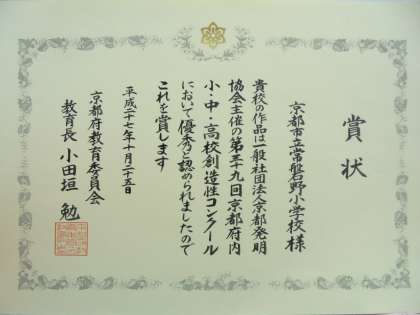 賞状
京都市立常磐野小学校様
貴校の作品は一般社団法人京都発明
協会主催の第三十九回京都府内
小・中・高校創造性コンクール
において優秀と認められましたので
これを賞します
平成二十七年十月二十五日
京都府教育委員会
教育長 小田垣 勉